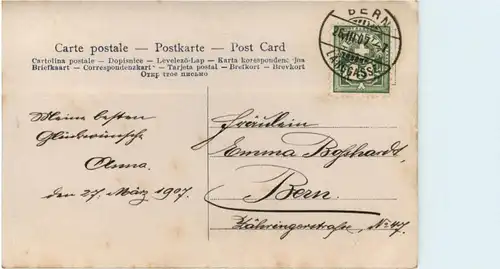 Carte postale — Postkarte — Post Card
Cartolina postale — Dopisnice — Levelező-Lap — Karta korespondencyjna
Briefkaart — Correspondenzkarte — Tarjeta postal — Brefkort — Brevkort
Открытое письмо
BERN
LÄNGGASSE
Meine besten
Glückwünsche,
Anna.
den 27. März 1907.
Fräulein
Emma Boßhardt,
Bern.
Zähringerstraße, No 47.